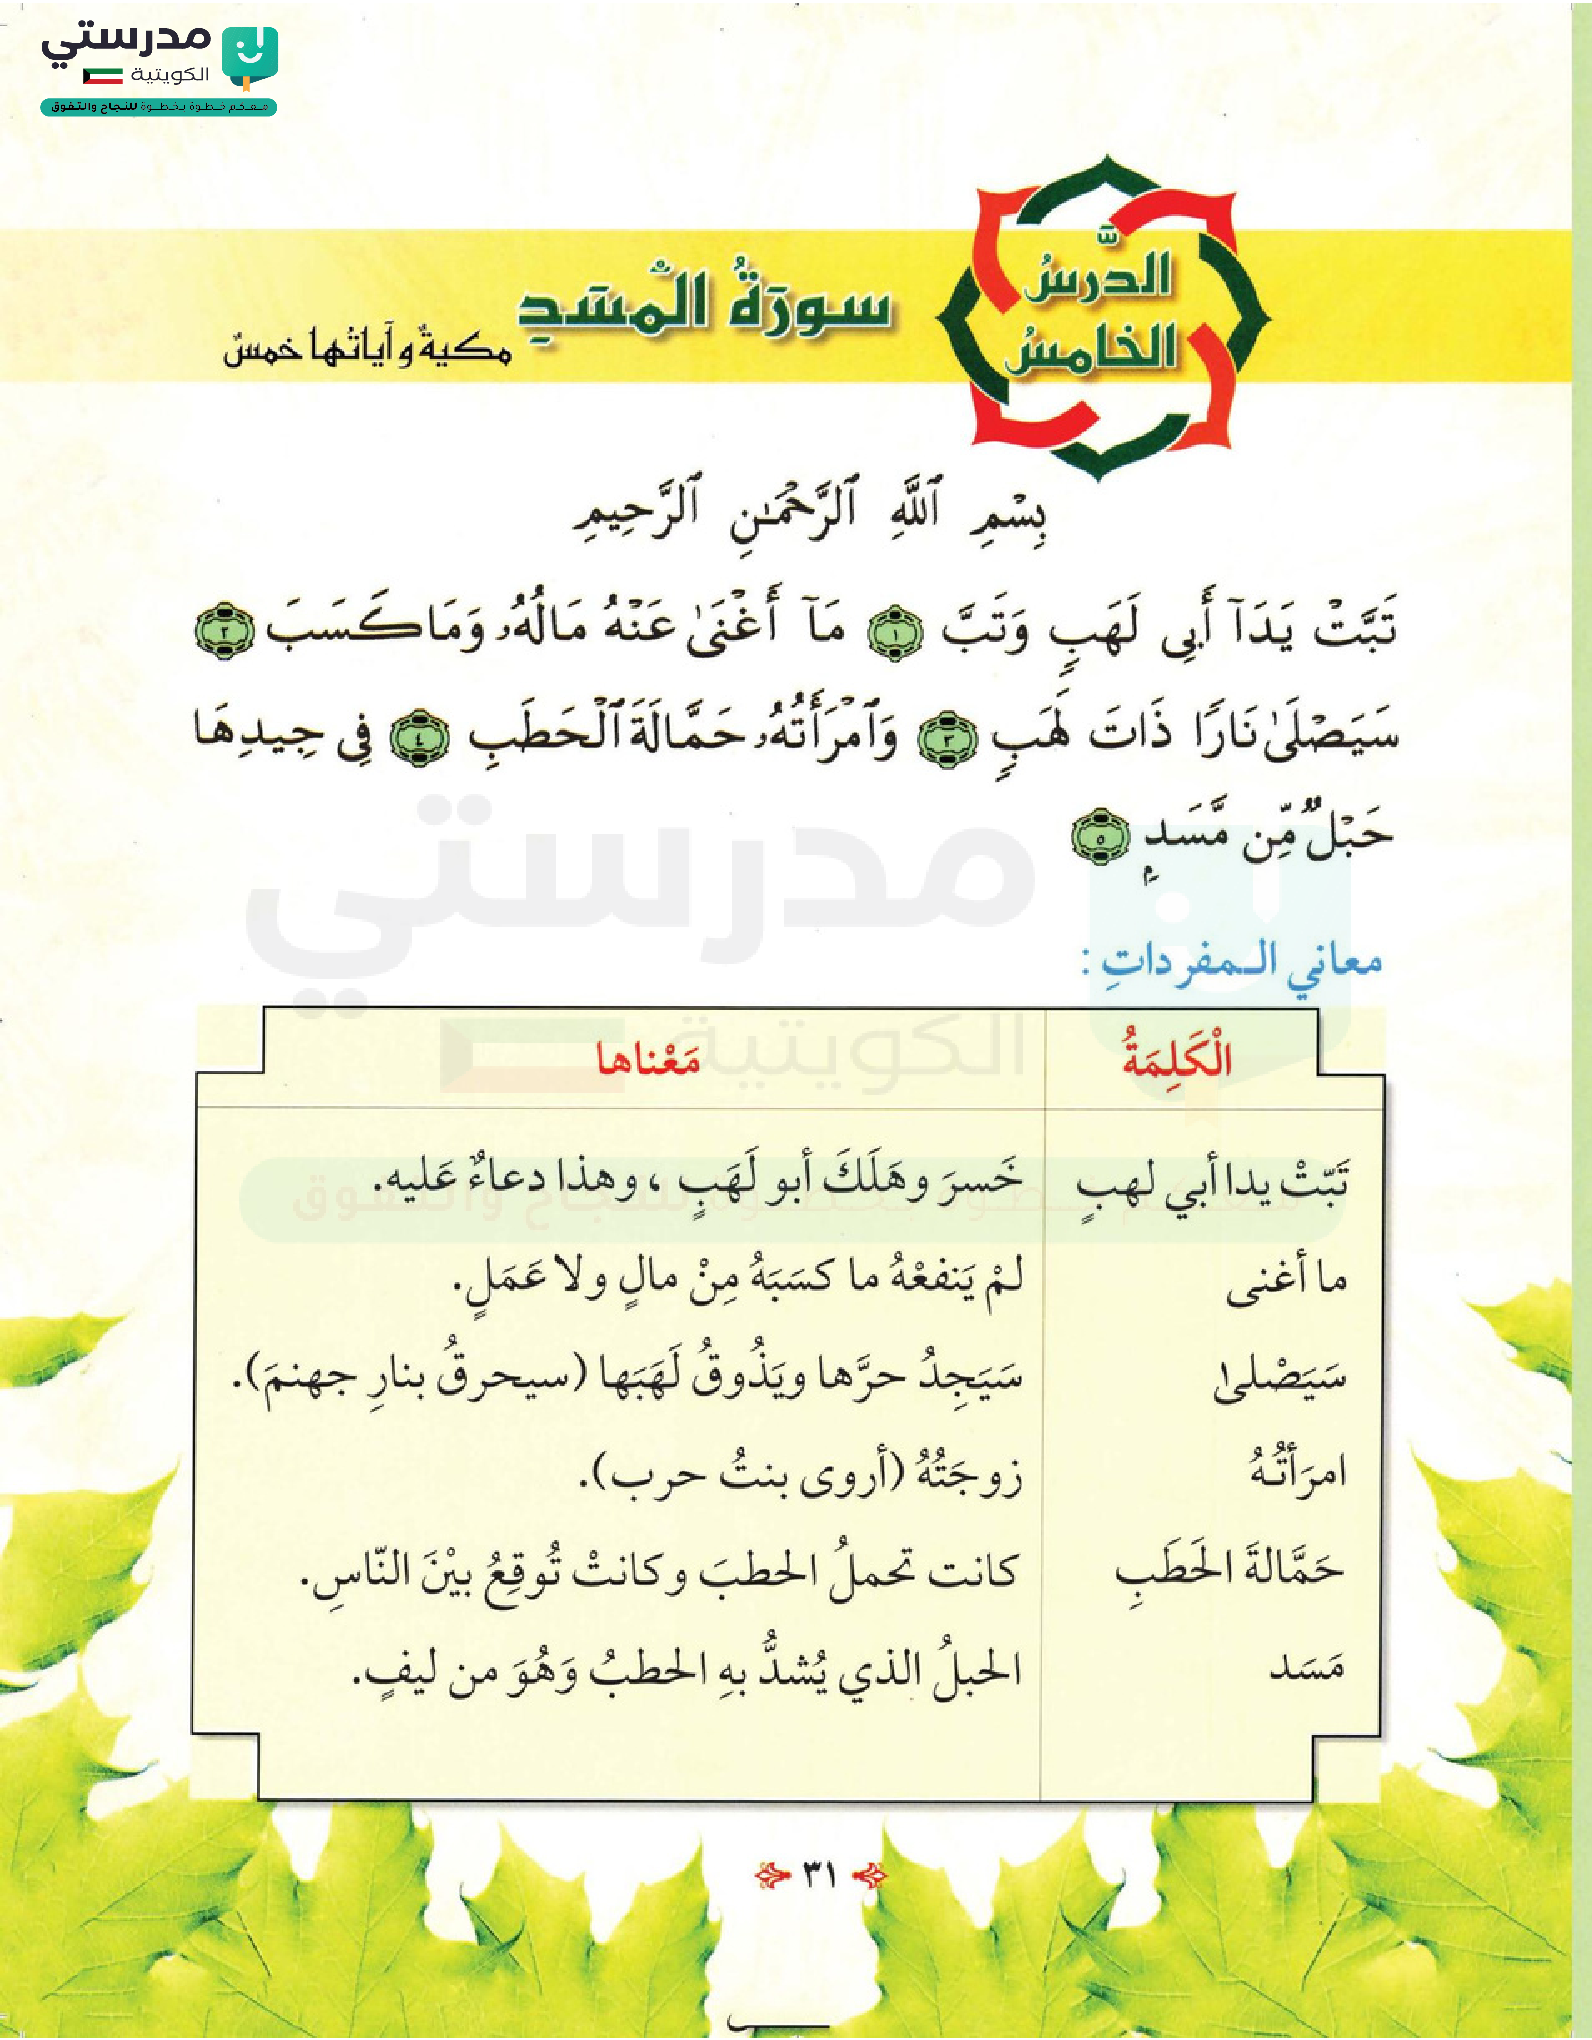 مدرستي
الكويتية
معكم خطوة بخطوة للنجاح والتفوق
الدَّرسُ
الخامسُ
سورَةُ الْمسَدِ
مكيةٌ وآياتُها خمسٌ
بِسْمِ ٱللَّهِ ٱلرَّحْمَـٰنِ ٱلرَّحِيمِ
تَبَّتْ يَدَآ أَبِى لَهَبٍ وَتَبَّ ١ مَآ أَغْنَىٰ عَنْهُ مَالُهُۥ وَمَا كَسَبَ ٢
سَيَصْلَىٰ نَارًا ذَاتَ لَهَبٍ ٣ وَٱمْرَأَتُهُۥ حَمَّالَةَ ٱلْحَطَبِ ٤ فِى جِيدِهَا
حَبْلٌ مِّن مَّسَدٍۭ ٥
معاني الـمفرداتِ :
الْكَلِمَةُ مَعْناها
تَبّتْ يدا أبي لهبٍ خَسرَ وهَلَكَ أبو لَهَبٍ ، وهذا دعاءٌ عَليه.
ما أغنى لمْ يَنفعْهُ ما كسَبَهُ مِنْ مالٍ ولا عَمَلٍ.
سَيَصْلىٰ سَيَجِدُ حرَّها ويَذُوقُ لَهَبَها (سيحرقُ بنارِ جهنمَ).
امرَأتُـهُ زوجَتُهُ (أروى بنتُ حرب).
حَمَّالةَ الحَطَبِ كانت تحملُ الحطبَ وكانتْ تُوقِعُ بيْنَ النّاسِ.
مَسَد الحبلُ الذي يُشدُّ بهِ الحطبُ وَهُوَ من ليفٍ.
٣١